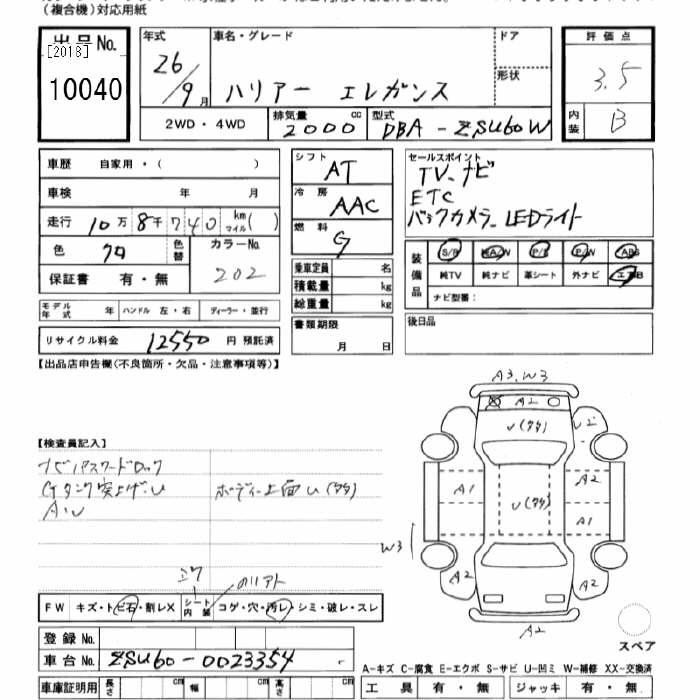 (複合機)対応用紙
出品No.
[2018]
10040
年式
26/9月
車名・グレード
ハリアー エレガンス
ドア
形状
評価点
3.5
内装
B
2WD・4WD
排気量
2000cc
型式
DBA-ZSU60W
車歴 自家用・( )
車検 年 月
走行 10万8千740 km マイル( )
色 クロ 色替
カラーNo. 202
保証書 有・無
モデル年式 年 ハンドル 左・右 ディーラー・並行
リサイクル料金 12550 円 預託済
シフト AT
冷房 AAC
燃料 G
乗車定員 名
積載量 kg
総重量 kg
書類期限
月 日
セールスポイント
TV、ナビ
ETC
バックカメラ、LEDライト
装備品
S/R AA/W P/S P/W ABS
純TV 純ナビ 革シート 外ナビ エアB
ナビ型番:
後日品
【出品店申告欄(不良箇所・欠品・注意事項等)】
【検査員記入】
ナビパスワードロック
Gタンク突上げ.U
AU
ボディー上面U(多多)
A3,W3
A2
U(多多)
U2
A1
A2
U(多多)
A1
W3
A2
A2
A2
スペア
ノリアト
FW キズ・トビ石・割レX シート内装 コゲ・穴・汚レ・シミ・破レ・スレ
登録No.
車台No. ZSU60-0023354
車庫証明用 長さ cm 幅 cm 高さ cm
A-キズ C-腐食 E-エクボ S-サビ U-凹ミ W-補修 XX-交換済
工具 有・無 ジャッキ 有・無